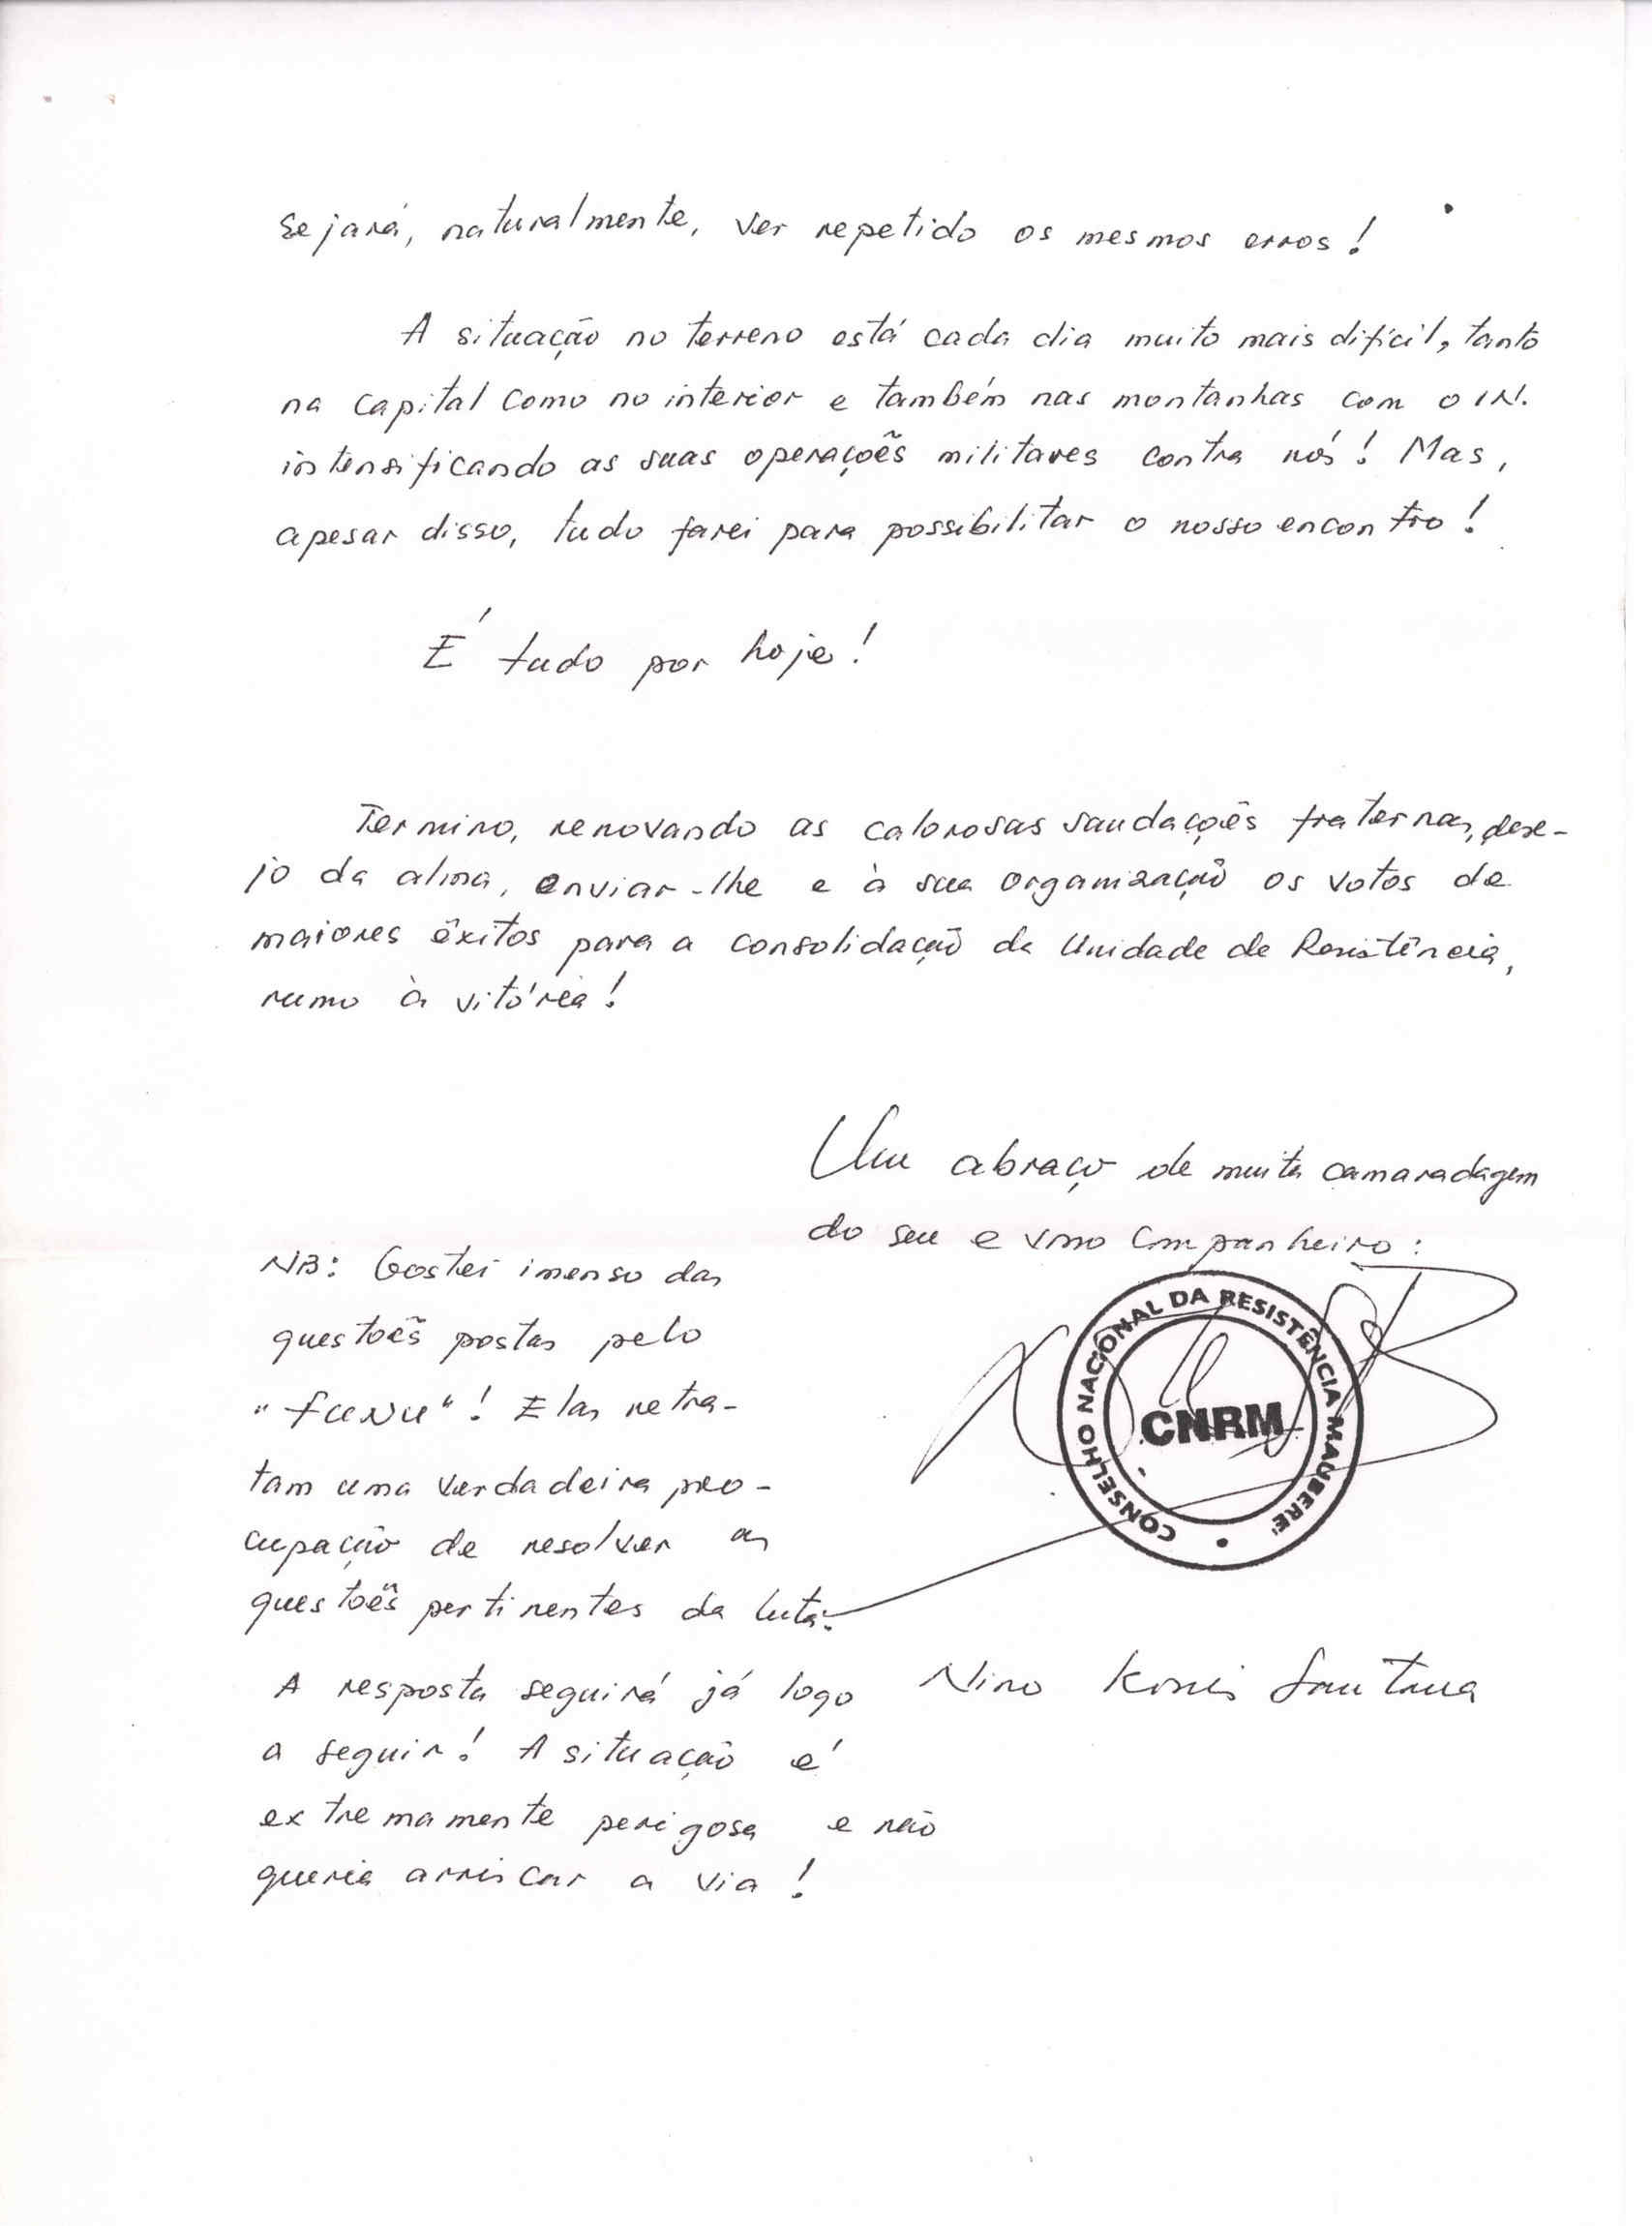 sejará, naturalmente, ver repetido os mesmos erros!
A situação no terreno está cada dia muito mais difícil, tanto
na capital como no interior e também nas montanhas com o IN.
intensificando as suas operações militares contra nós! Mas,
apesar disso, tudo farei para possibilitar o nosso encontro!
É tudo por hoje!
Termino, renovando as calorosas saudações fraternas, dese-
jo da alma, enviar-lhe e à sua organização os votos de
maiores êxitos para a consolidação da Unidade de Resistência,
rumo à vitória!
Um abraço de muita camaradagem
do seu e vosso companheiro:
CONSELHO NACIONAL DA RESISTÊNCIA MAUBERE
CNRM
Nino Konis Santana
NB: Gostei imenso das
questões postas pelo
"Funu"! Elas retra-
tam uma verdadeira preo-
cupação de resolver as
questões pertinentes da luta.
A resposta seguirá já logo
a seguir! A situação é
extremamente perigosa e não
queria arriscar a via!